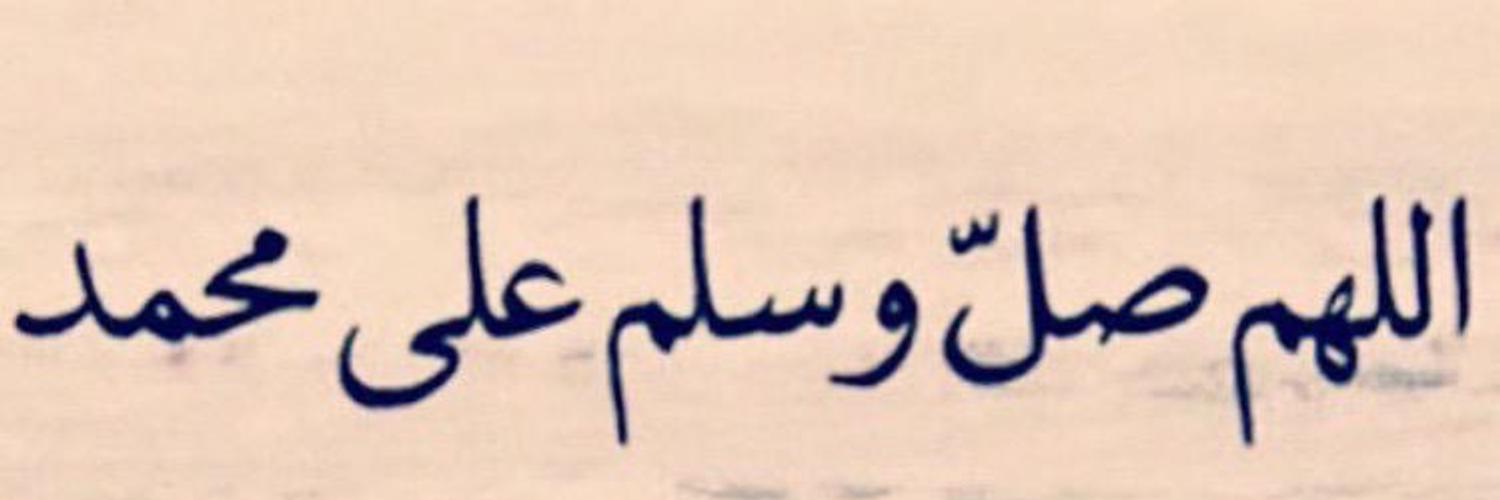 اللهم صلّ وسلم على محمد